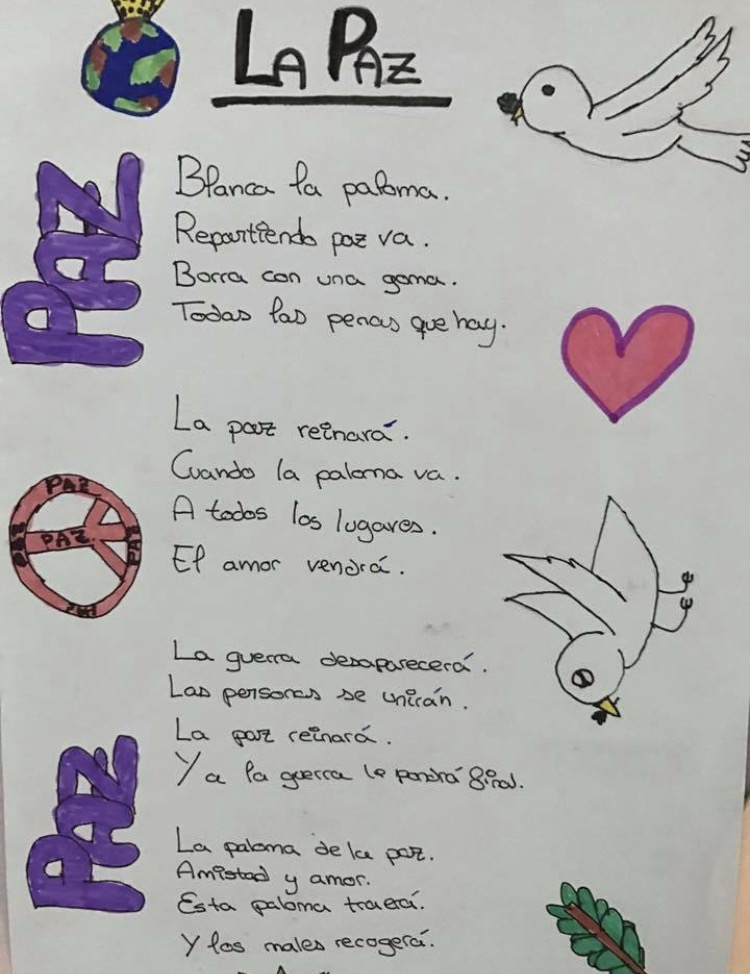 LA PAZ
PAZ
Blanca la paloma.
Repartiendo paz va.
Borra con una goma.
Todas las penas que hay.
La paz reinará.
Cuando la paloma va.
A todos los lugares.
El amor vendrá.
PAZ
PAZ
PAZ
PAZ
PAZ
La guerra desaparecerá.
Las personas se unirán.
La paz reinará.
Y a la guerra le pondrá final.
PAZ
La paloma de la paz.
Amistad y amor.
Esta paloma traerá.
Y los males recogerá.